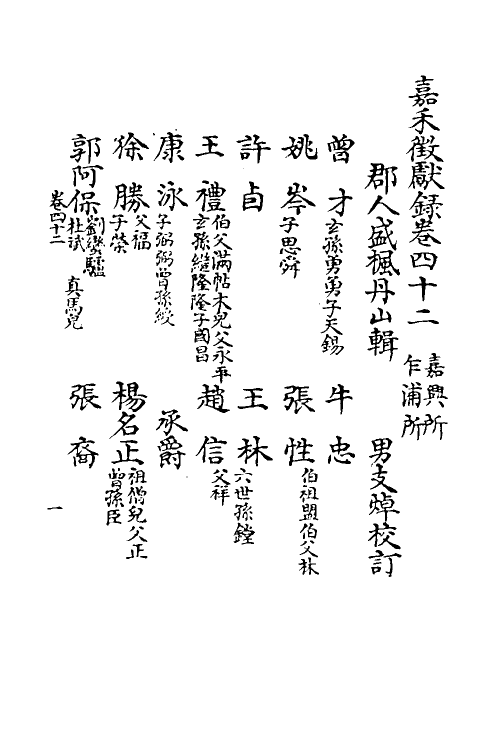 嘉禾徵獻錄卷四十二 嘉興所 乍浦所
郡人盛楓丹山輯 男支焯校訂
曾才 玄孫勇勇子天錫 牛忠
姚岑 子思舜 張性 伯祖盟伯父林
許貞 王林 六世孫鏜
王禮 伯父滿帖木兒父永平玄孫繼隆隆子國昌 趙信 父祥
康泳 子弼弼曾孫綬 承爵
徐勝 父福子榮 楊名正 祖僧兒父正曾孫臣
郭阿保 劉 驢杜斌 真馬兒 張裔
卷四十二 一